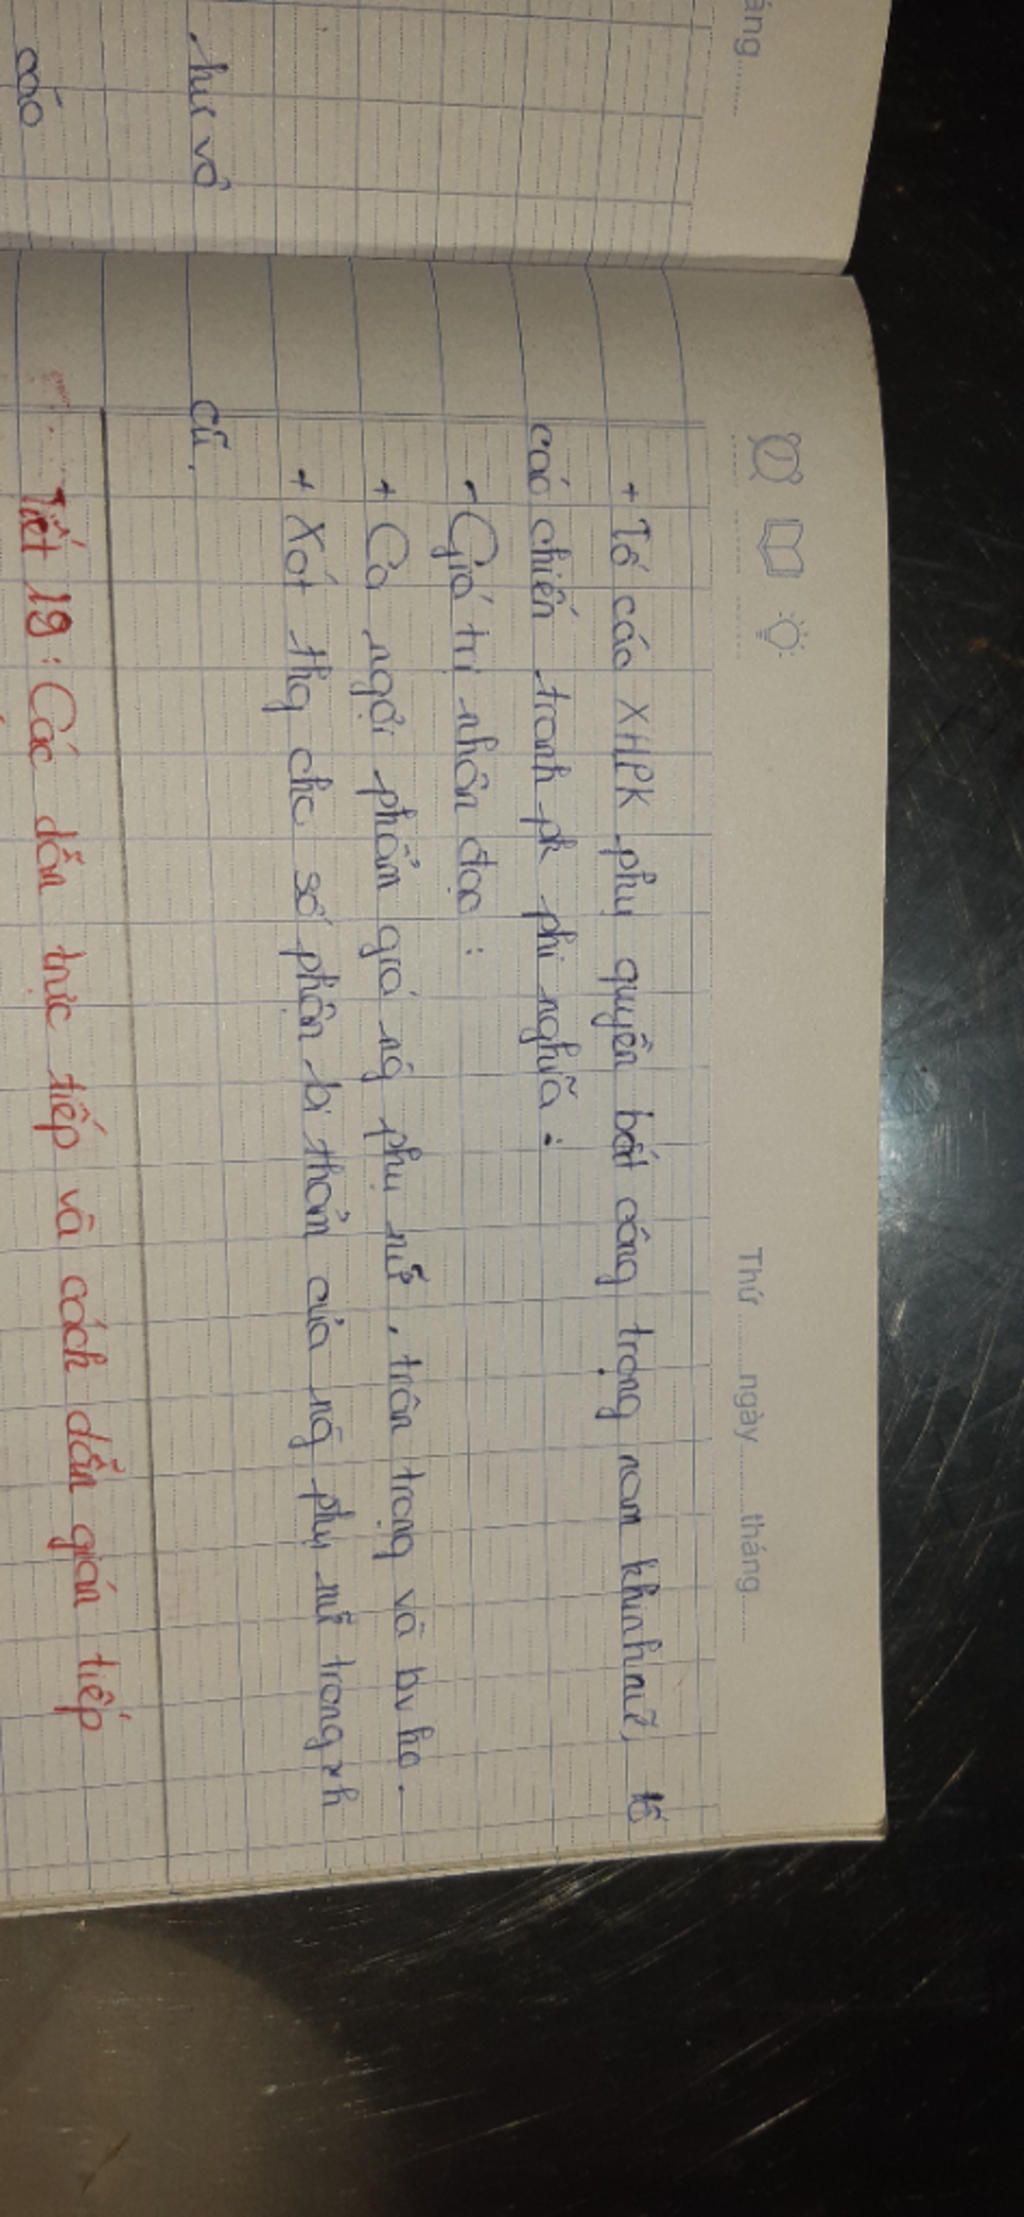 áng........
hư vô
cáo
Thứ ........ngày..........tháng......
+ Tố cáo XHPK phụ quyền bất công trọng nam khinh nữ, tố
cáo chiến tranh pk phi nghĩa.
- Giá trị nhân đạo :
+ Ca ngợi phẩm giá ng phụ nữ, trân trọng và bv họ.
+ Xót thg cho số phận bi thảm của ng phụ nữ trong xh
cũ.
Tiết 19 : Các dẫn trực tiếp và cách dẫn gián tiếp